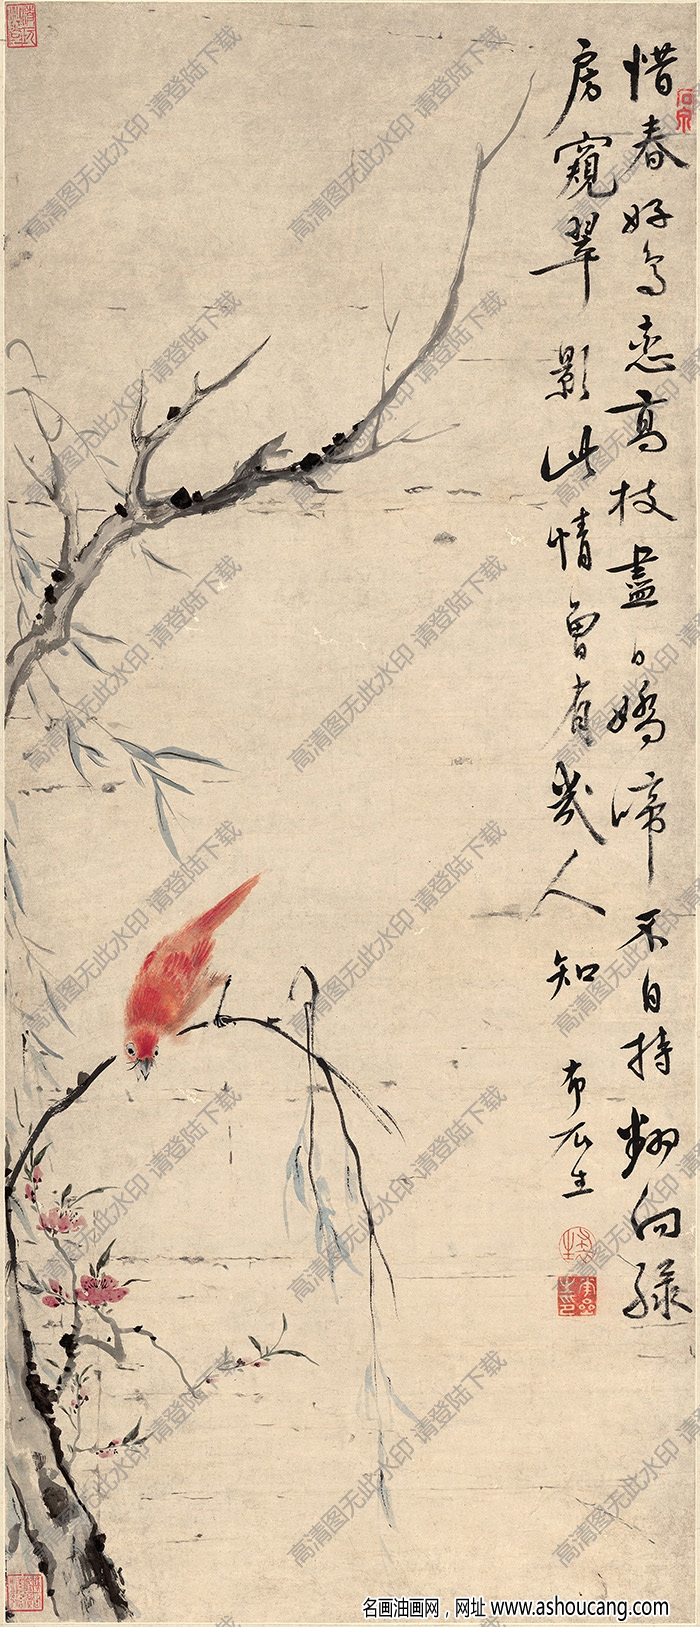 惜春好鳥戀高枝盡日嬌啼不自持翻向綠
房窺翠影此情曾有幾人知
布衣生
高清图无此水印 请登陆下载
名画油画网，网址 www.ashoucang.com